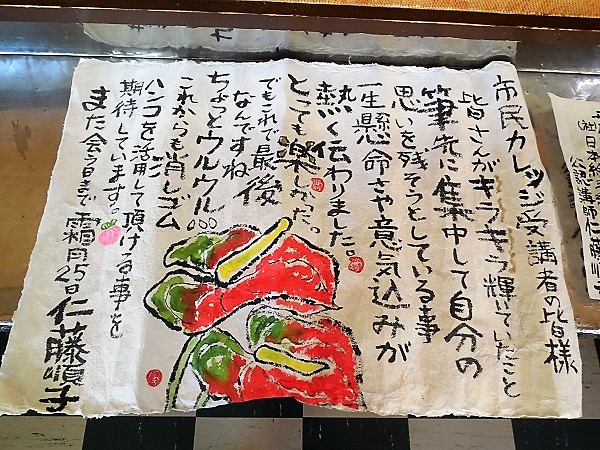 市民カレッジ受講者の皆様
皆さんがキラキラ輝いていたこと
筆先に集中して自分の
思いを残そうとしている事
一生懸命さや意気込みが
熱く伝わりました。
とても楽しかった。
でもこれで最後
なんですね
ちょっとウルウル。。。
これからも消しゴム
ハンコを活用して頂ける事を
期待しています。
また会う日まで 霜月25日 仁藤順子
公認講師 仁藤順子